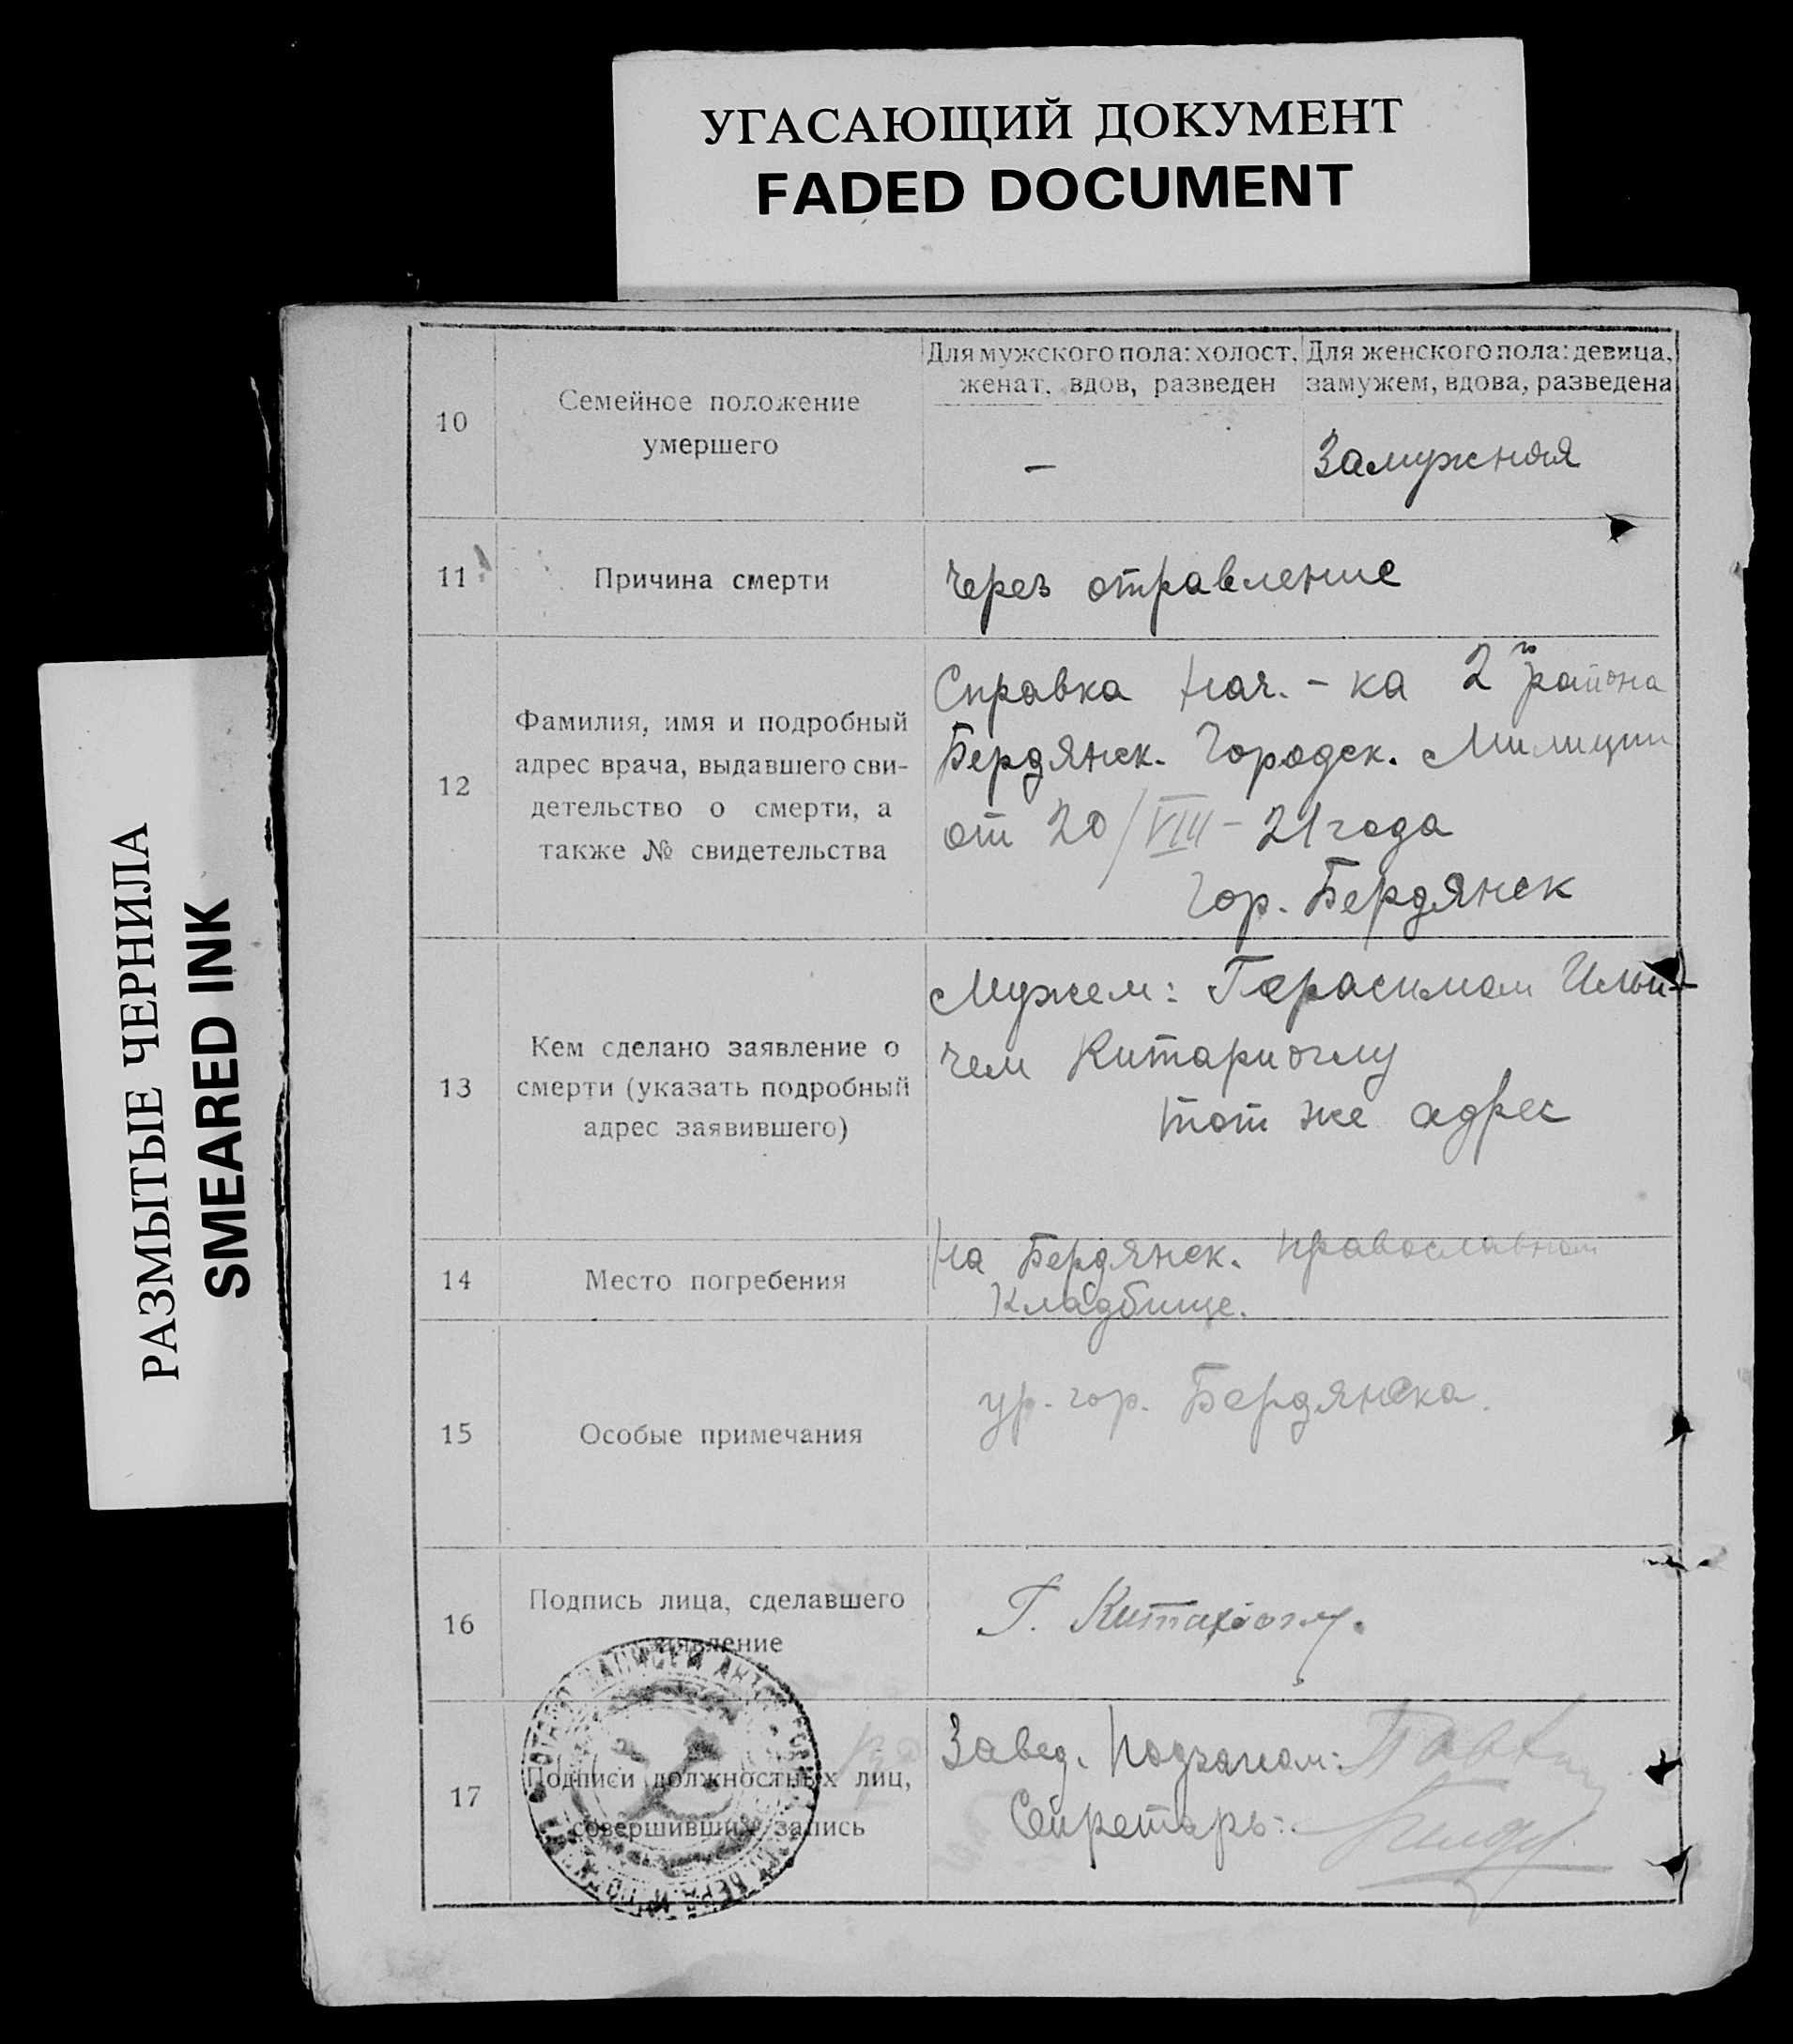 УГАСАЮЩИЙ ДОКУМЕНТ
FADED DOCUMENT
РАЗМЫТЫЕ ЧЕРНИЛА
SMEARED INK
10
Семейное положение
умершего
Для мужского пола: холост,
женат, вдов, разведен
Для женского пола: девица,
замужем, вдова, разведена
—
Замужняя
11
Причина смерти
Через отравление
12
Фамилия, имя и подробный
адрес врача, выдавшего сви-
детельство о смерти, а
также № свидетельства
Справка Нач.-ка 2го района
Бердянск. Городск. Милиции
от 20/VIII-21 года
Гор. Бердянск
13
Кем сделано заявление о
смерти (указать подробный
адрес заявившего)
Мужем: Герасимом Ильи-
чем Китариоглу
тот же адрес
14
Место погребения
На Бердянск. православном
Кладбище.
15
Особые примечания
ур. гор. Бердянска.
16
Подпись лица, сделавшего
заявление
Г. Китариоглу.
17
Подписи должностных лиц,
совершивших запись
Завед. Подзагсом:
Секретарь: